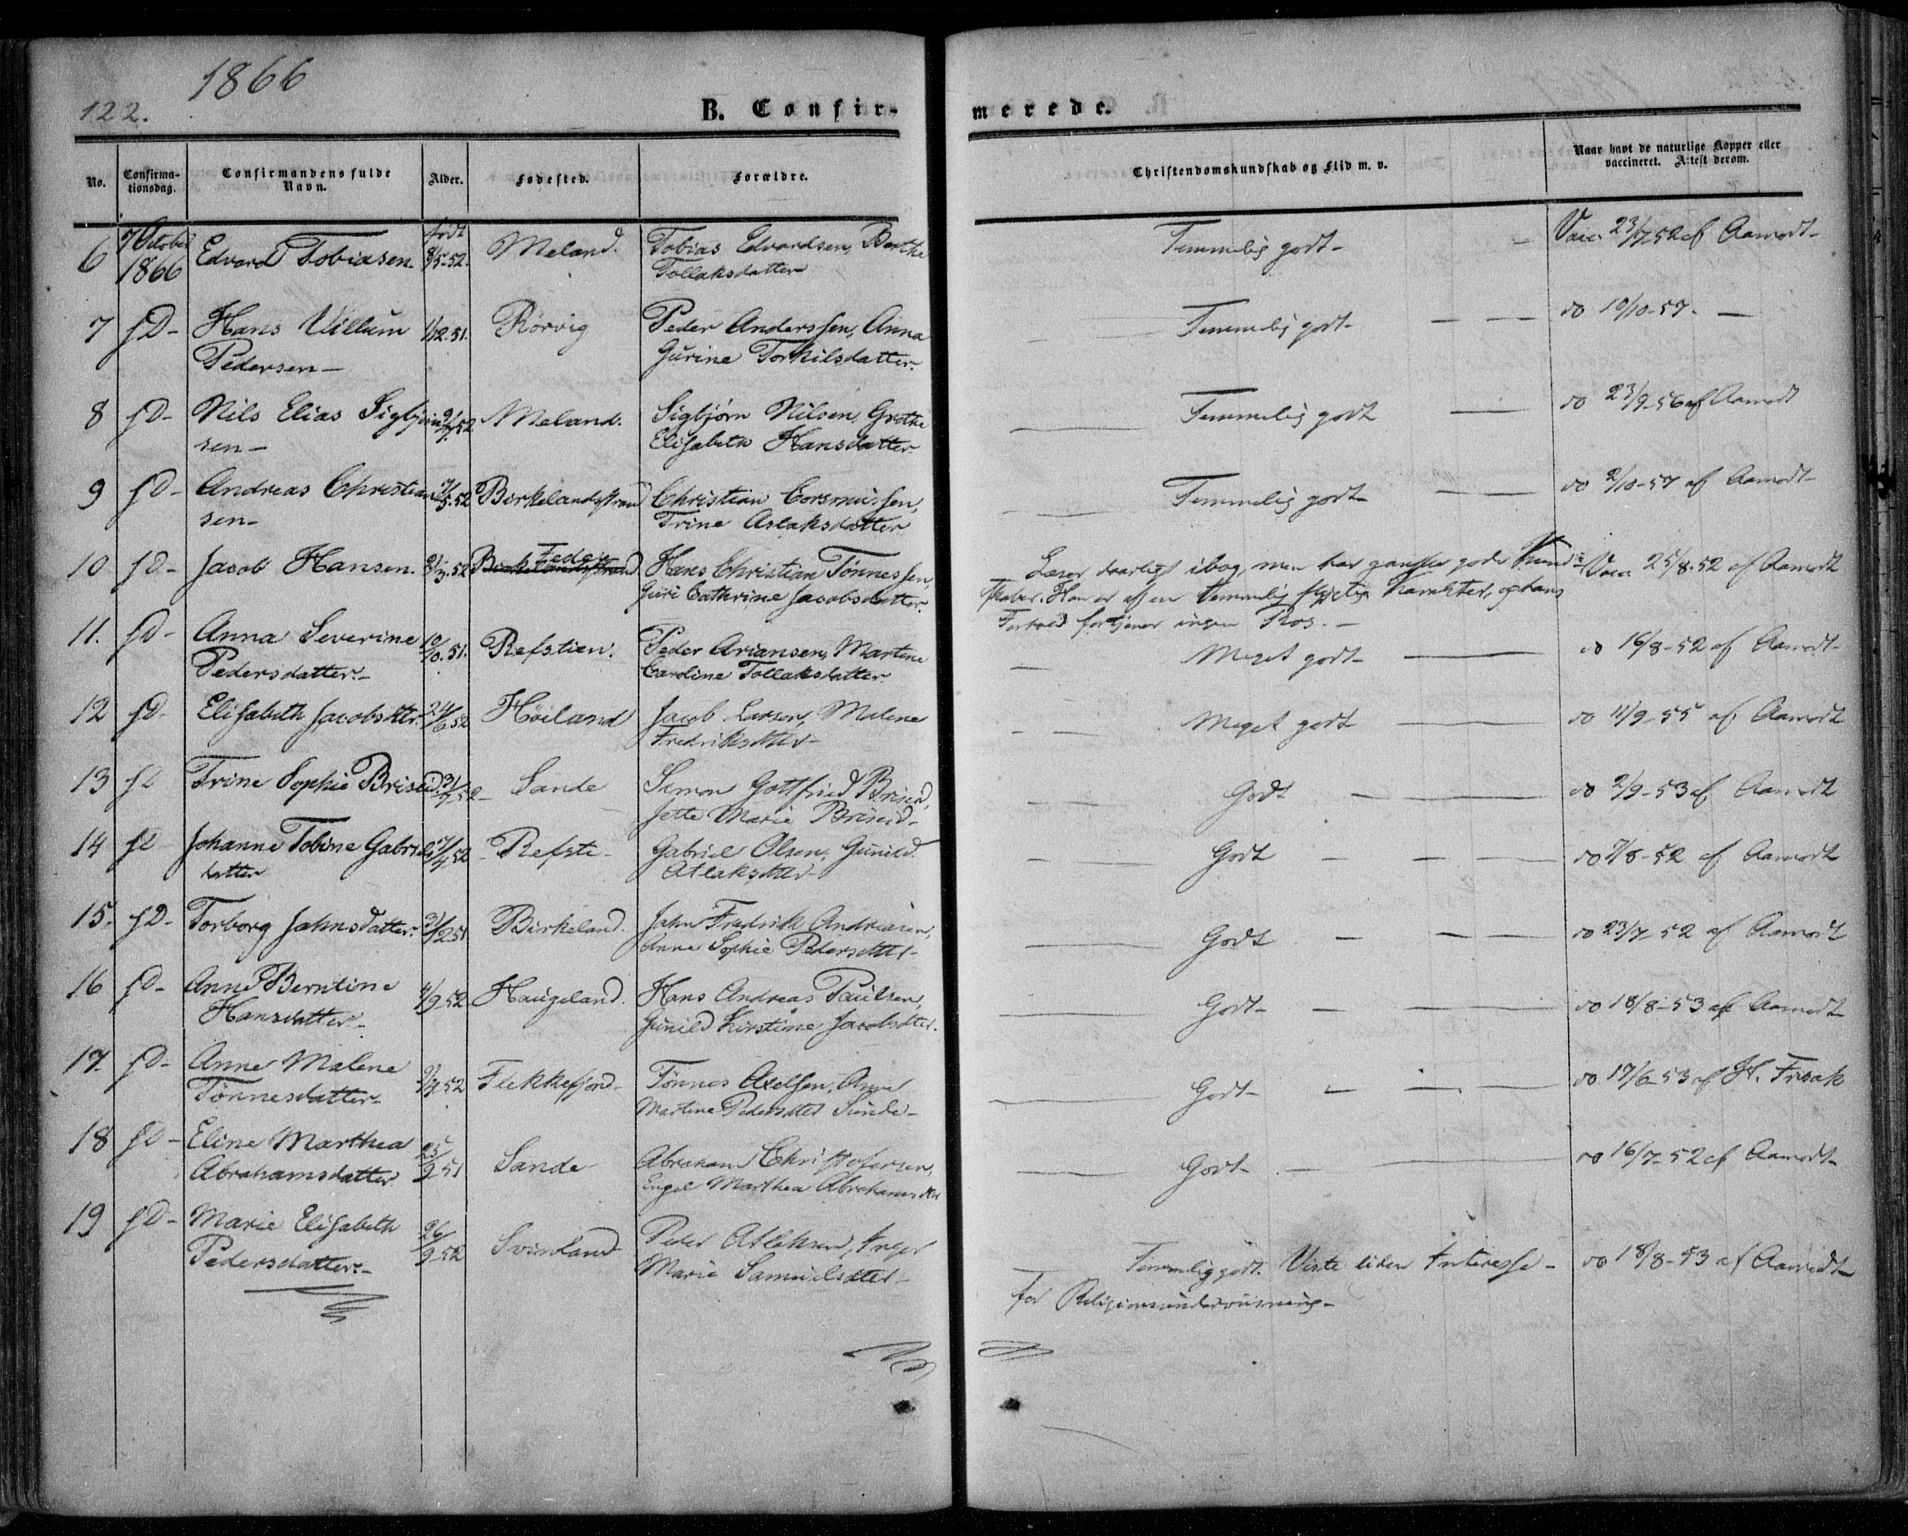 1866
122.
B. Confir-
merede.
No.
Confirma-
tionsdag.
Confirmandens fulde
Navn.
Alder.
Fødested.
Forældre.
Christendomskundskab og Flid m. v.
Naar havt de naturlige Kopper eller
vaccineret. Attest derom.
6 7 October 1866 Edvard Tobiasen født 8/5-52. Meland. Tobias Edvardsen, Berthe
Tollaksdatter
Temmelig godt - Vacc. 23/7 52 af Aamodt-
7 sD- Hans Villum 1/12.51. Rørvig Peder Anderssen, Anna
Pedersen- Gurine Torkilsdatter.
Temmelig godt- do 10/10-57.-
8 sD- Nils Elias Sigbjørn 9/7 52 Meland. Sigbjørn Nilsen, Grethe
sen- Elisabeth Hansdatter
Temmelig godt do 23/9-56 af Aamodt
9 sD- Andreas Christian 52 Birkelandsstrand Christian Corsmussen,
sen- Trine Aslaksdatter
Temmelig godt- do 2/10-57 af Aamodt-
10 sD- Jacob Hansen. 52 Birkelandsstrand Feda Hans Christian Tønnessen,
Guri Cathrine Jacobsdatter.
Læser daarligt ibog, men har ganske gode Kund-
skaber. Han er af en temmelig Karakter, og hans
Forhold fortjener ingen Ros.-
Vacc. 25/8-52 af Aamodt
11. sD- Anna Severine 51. Refstien. Peder Ariansen, Martine
Pedersdatter.- Caroline Tollaksdatter
Meget godt- do 16/8-52 af Aamodt-
12 sD- Elisabeth Jacobsdtr. 24/6 52 Høiland Jacob Larsen, Malene
Fredriksdtter-
Meget godt do 11/9-55 af Aamodt
13 sD Trine Sophie Briseid. 31/7 52- Sande Simon Gottfried Briseid,
Jette Marie Briseid-
Godt do 2/9-53 af Aamodt
14 sD Johanne Tobine Gabriels 52 Refsti- Gabriel Olsen, Gunild
datter Atlaksdtter-
Godt do 7/8-52 af Aamodt
15. sD- Torborg Jahnsdatter. 51 Birkeland. Jahn Fredrik Andreasen,
Anne Sophie Pedersdtter-
Godt do 23/7-52 af Aamodt
16 sD- Anne Berntine 4/9-52 Haugeland. Hans Andreas Paulsen,
Hansdatter- Gunild Kirstine Jacobsdtter.
Godt- do 18/8-53 af Aamodt
17. sD- Anne Malene 52 Flekkefjord- Tønnes Axelsen, Anne
Tønnesdatter- Martine Pedersdtter Sunde-
Godt- do 17/6-53 af H. Frisak
18 sD- Eline Marthea 25/9-51 Sande Abraham Christofersen,
Abrahamsdatter Engel Marthea Abrahamsdtr
Godt- do 16/7-52 af Aamodt-
19 sD- Marie Elisabeth 26/9-52 Svindland Peder Atleksen, Inger
Pedersdatter.- Marie Samuelsdtter-
Temmelig godt. Viste liden Interesse-
for Religionsundervisning-
do 18/8-53 af Aamodt-